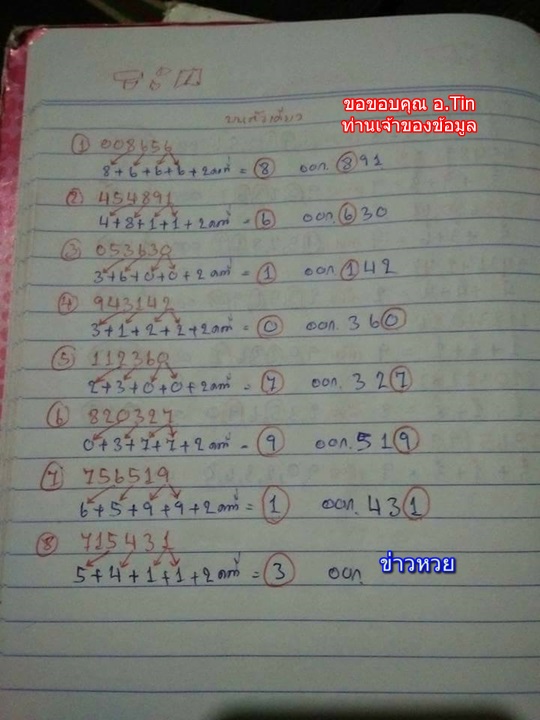 ขอขอบคุณ อ.Tin
ท่านเจ้าของข้อมูล
บนตัวเดียว
① 008656
8+6+6+6+2คงที่ = 8 ออก. 891
② 454891
4+8+1+1+2คงที่ = 6 ออก. 630
③ 053630
3+6+0+0+2คงที่ = 1 ออก 142
④ 943142
3+1+2+2+2คงที่ = 0 ออก. 360
⑤ 112360
2+3+0+0+2คงที่ = 7 ออก. 327
⑥ 820327
0+3+7+7+2คงที่ = 9 ออก. 519
⑦ 756519
6+5+9+9+2คงที่ = 1 ออก. 431
⑧ 715431
5+4+1+1+2คงที่ = 3 ออก.
ข่าวหวย